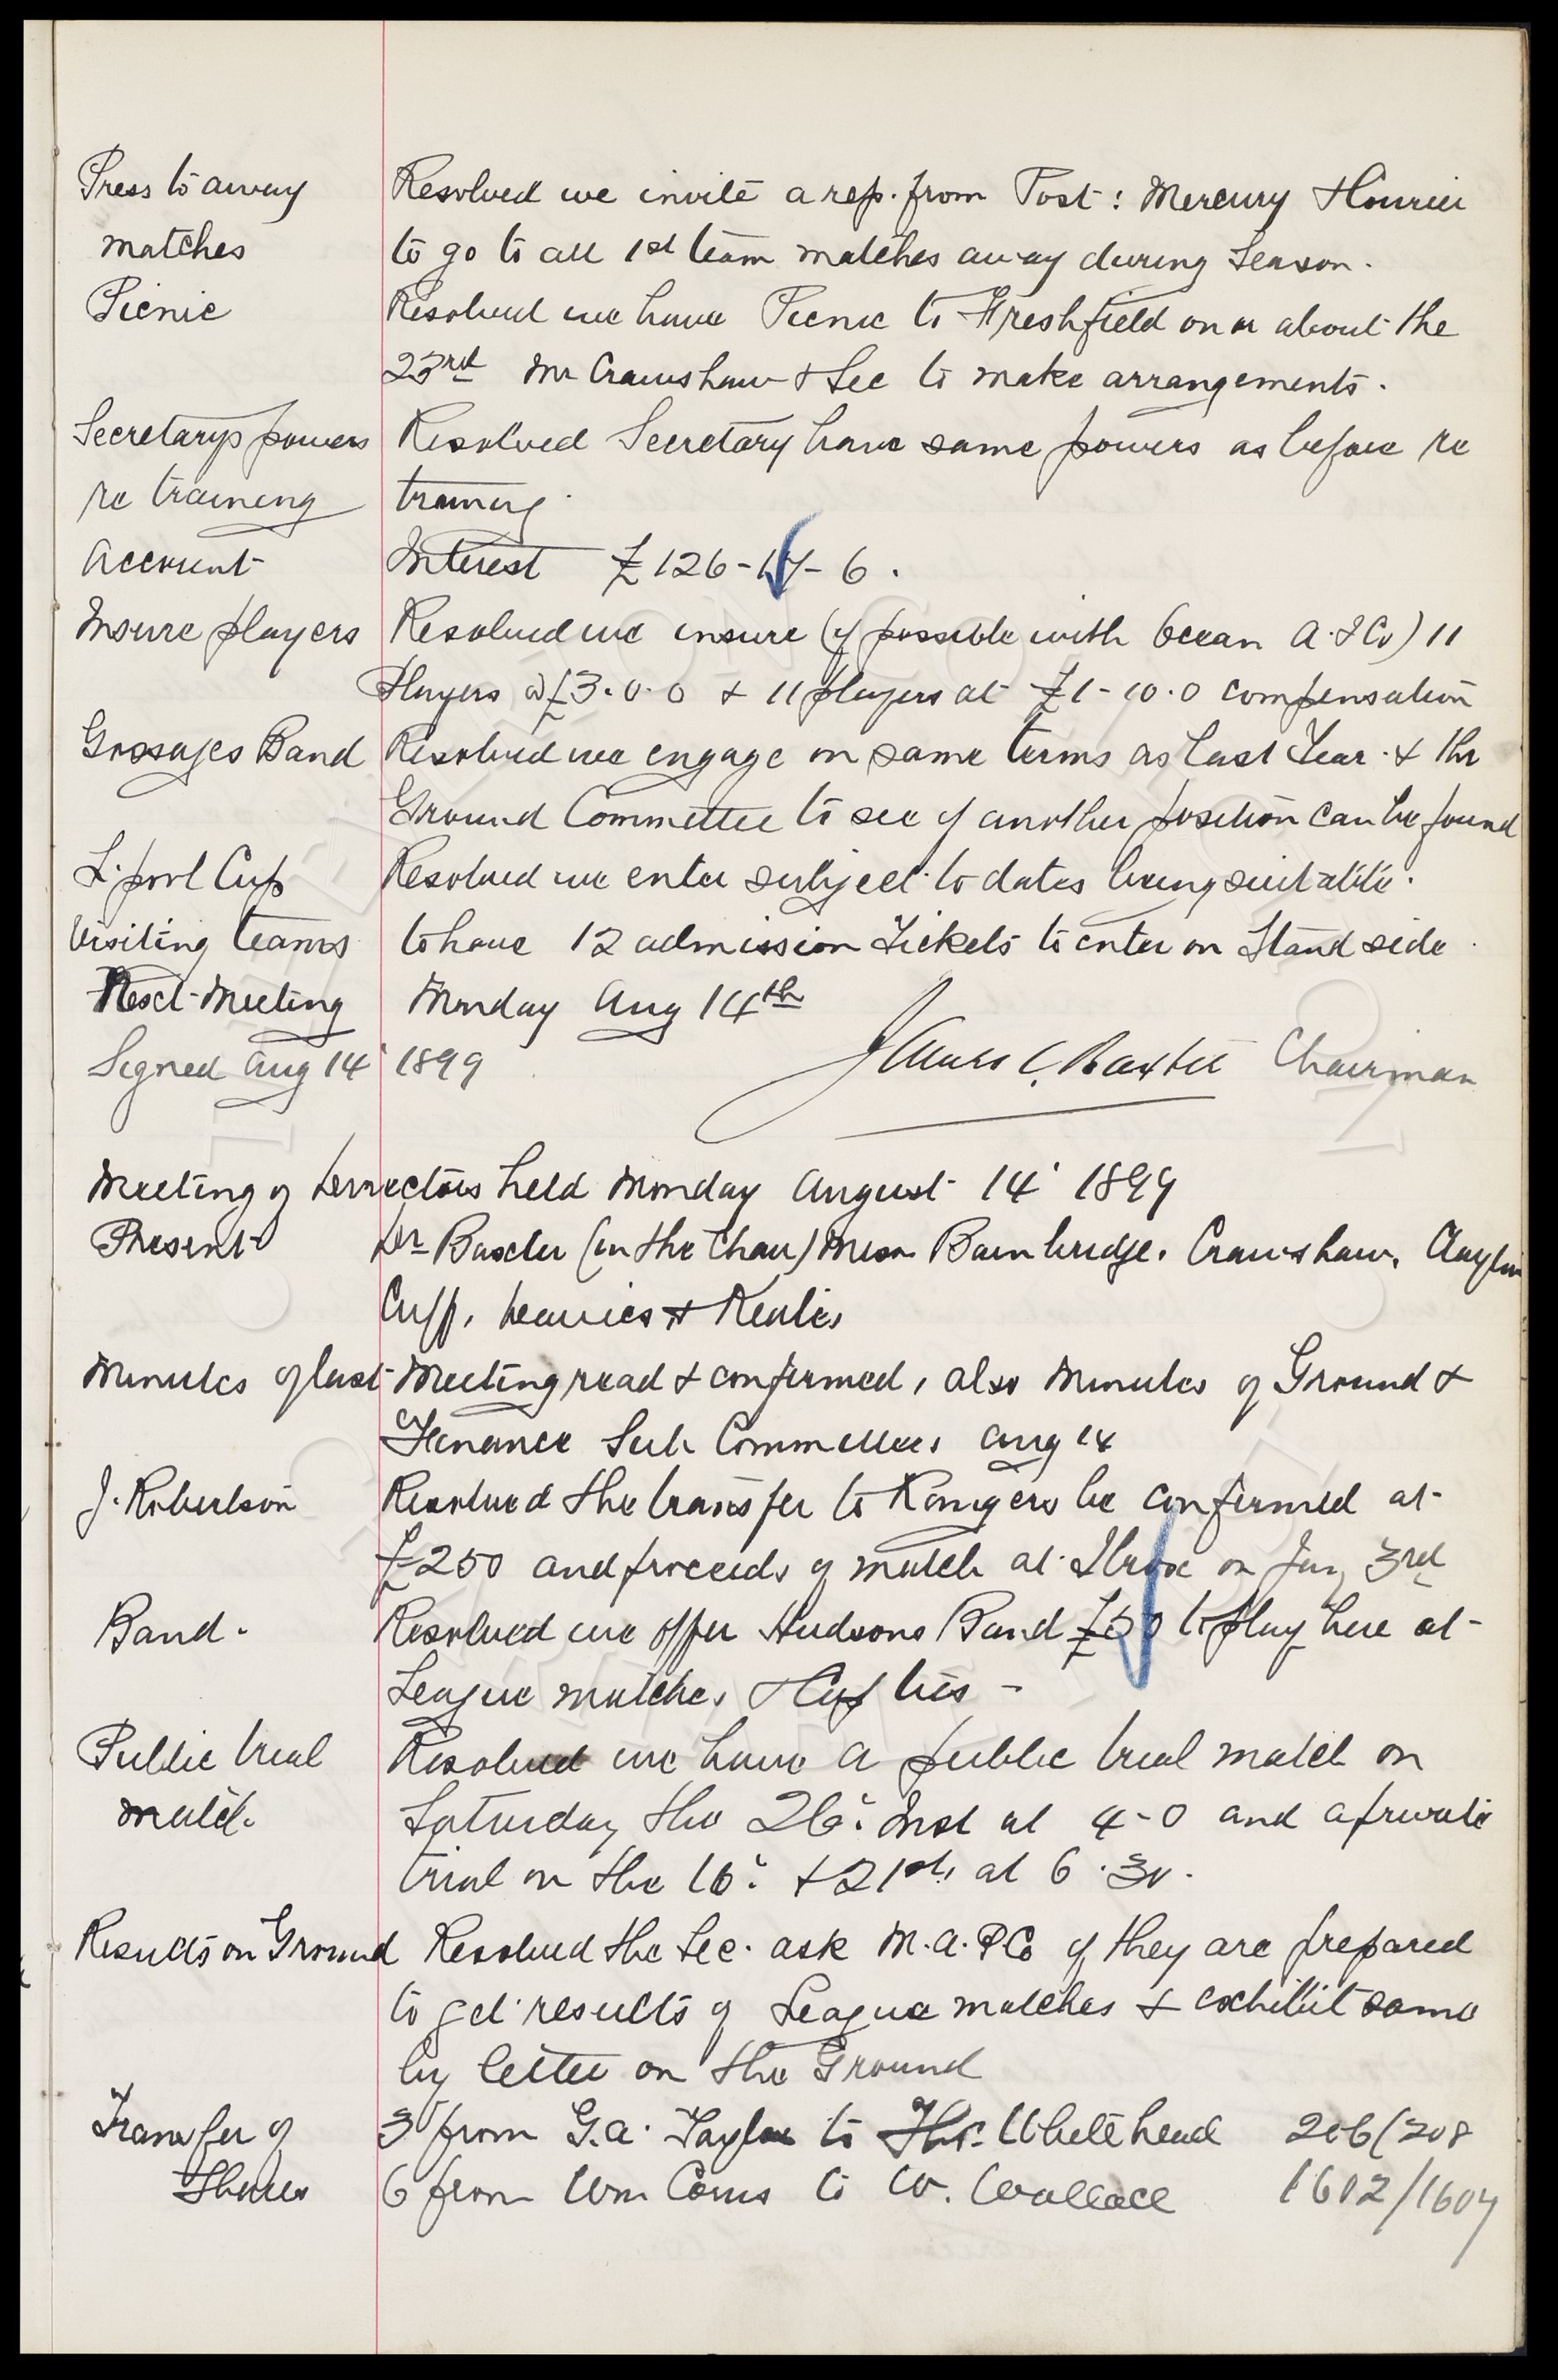 Press to away Resolved we invite a rep. from Post: Mercury & Courier
matches to go to all 1st team matches away during Season.
Picnic Resolved we have Picnic to Freshfield on or about the
23rd Mr Crawshaw & Sec to make arrangements.
Secretarys powers Resolved Secretary have same powers as before re
re training training.
Account Interest £126-17-6.
Insure players Resolved we insure (if possible with Ocean A. & Co) 11
Players @ £3.0.0 & 11 players at £1-10.0 compensation
Gossages Band Resolved we engage on same terms as last Year. & the
Ground Committee to see if another position can be found
L.pool Cup Resolved we enter subject to dates being suitable.
Visiting teams to have 12 admission Tickets to enter on Stand side.
Next Meeting Monday Aug 14th
Signed Aug 14 1899 James C. Baxter Chairman
Meeting of Directors held Monday August 14 1899
Present Dr Baxter (in the Chair) Messrs Bainbridge, Crawshaw, Clayton
Cuff, Davies & Keates
Minutes of last Meeting read & confirmed, also Minutes of Ground &
Finance Sub Committees Aug 14
J. Robertson Resolved the transfer to Rangers be confirmed at
£250 and proceeds of match at Ibrox on Jan 3rd
Band. Resolved we offer Hudsons Band £50 to play here at
League matches & Cup ties -
Public trial Resolved we have a public trial match on
match. Saturday the 26. Inst at 4-0 and a private
trial on the 16. & 21st, at 6.30.
Results on Ground Resolved the Sec. ask M.A.P.Co if they are prepared
to get results of League matches & exhibit same
by letter on the Ground
Transfer of 3 from G.A. Taylor to Thos. Whitehead 206/208
Shares 6 from Wm Coms to W. Wallace 1602/1607